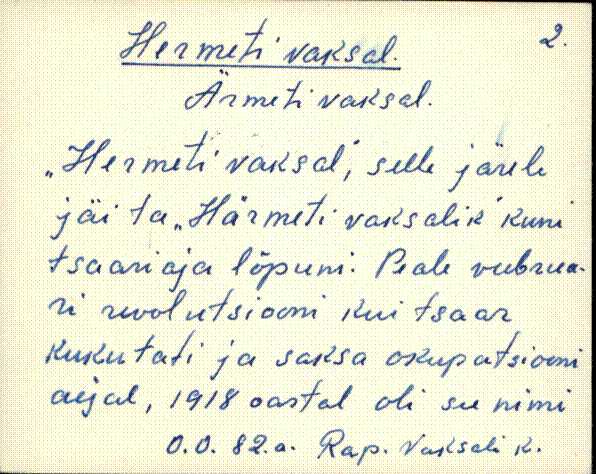 2.
Hermeti vaksal.
Ärmeti vaksal.
„Hermeti vaksal", selle järele
jäi ta „Härmeti vaksalik" kuni
tsaariaja lõpuni. Peale veebrua-
ri revolutsiooni kui tsaar
kukutati ja saksa okupatsiooni
aejal, 1918 aastal oli see nimi
O.O. 82.a. Rap. Vaksali k.